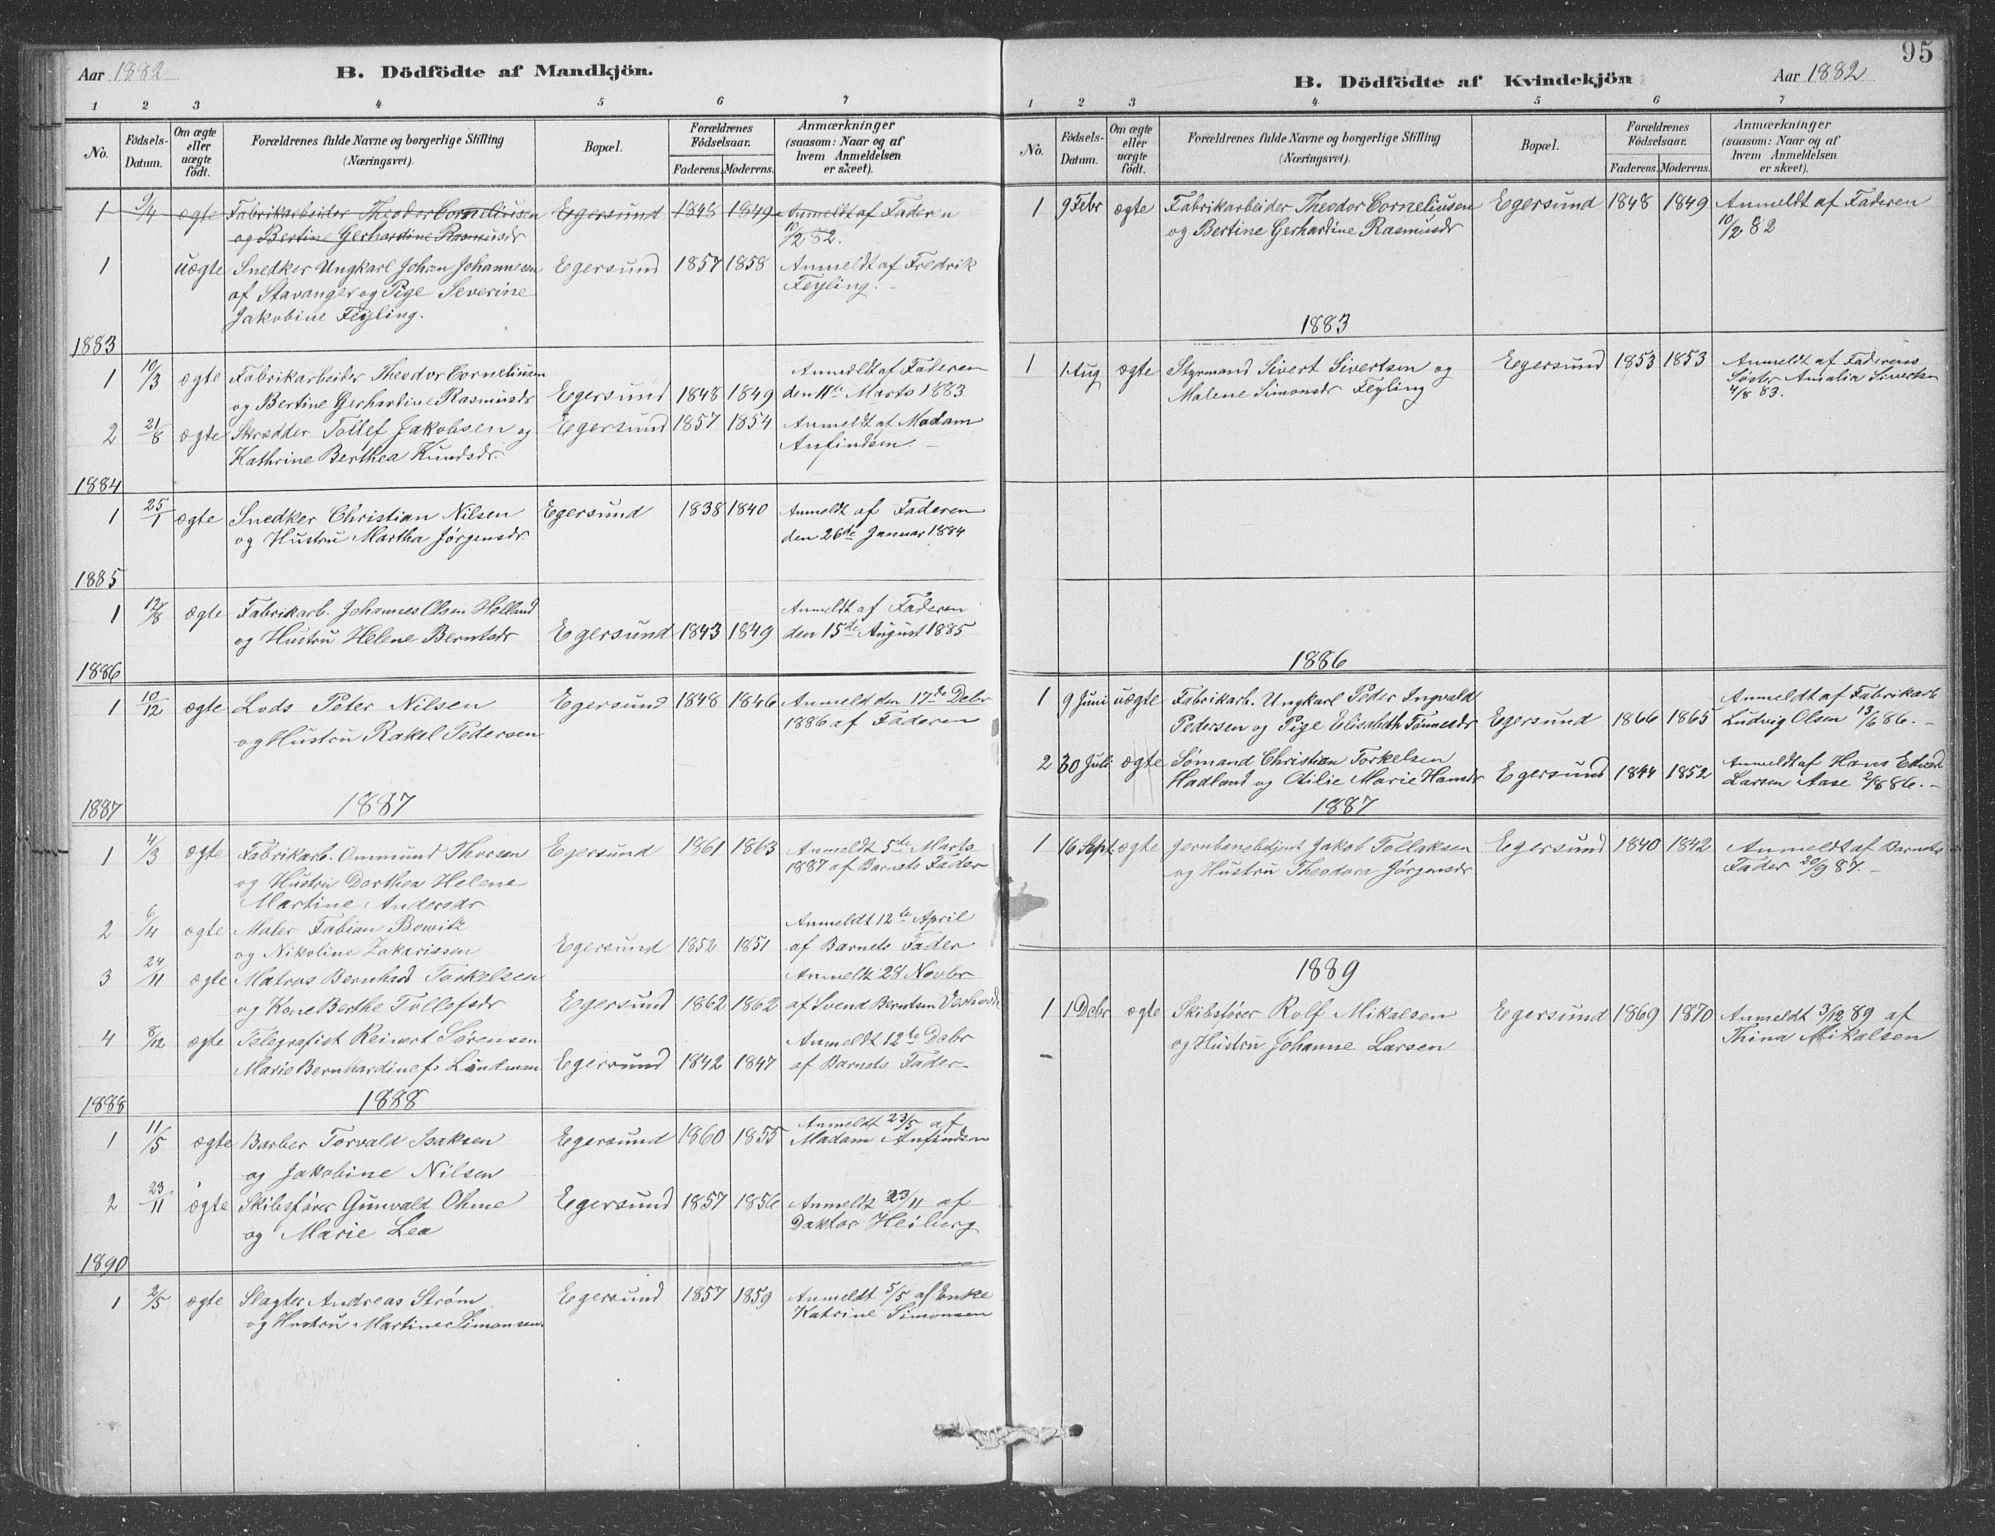 Aar 1882
B. Dödfödte af Mandkjön.
1 2 3 4 5 6 7
No. Födsels-Datum. Om ægte eller uægte födt. Forældrenes fulde Navne og borgerlige Stilling (Næringsvei). Bopæl. Forældrenes Födselsaar. Faderens. Moderens. Anmærkninger (saasom: Naar og af hvem Anmeldelsen er skeet).
1 9/4 ægte Fabrikarbeider Theodor Corneliusen Egersund 1848 1849 Anmeldt af Faderen
og Bertine Gerhardine Rasmusdr 10/2 82.
1 uægte Snedker Ungkarl Johan Johannesen Egersund 1857 1858 Anmeldt af Fredrik
af Stavanger og Pige Severine Feyling.
Jakobine Feyling.
1883
1 10/3 ægte Fabrikarbeider Theodor Corneliusen Anmeldt af Faderen
og Bertine Gerhartine Rasmusdr Egersund 1848 1849 den 11te Marts 1883
2 21/8 ægte Skrædder Tollef Jakobsen og Egersund 1857 1854 Anmeldt af Madam
Kathrine Berthea Knudsdr. Anfindsen.
1884
1 25/1 ægte Snedker Christian Nilsen Egersund 1838 1840 Anmeldt af Faderen
og Hustru Martha Jørgensdr. den 26de Januar 1884
1885
1 12/8 ægte Fabrikarb. Johannes Olsen Holland Anmeldt af Faderen
og Hustru Helene Berntsdr Egersund 1843 1849 den 15de August 1885
1886
1 10/12 ægte Lods Peter Nilsen Egersund 1848 1846 Anmeldt den 17de Debr
og Hustru Rakel Pedersen 1886 af Faderen
1887 1887
1 4/3 ægte Fabrikarb. Ommund Thorsen Egersund 1861 1863 Anmeldt 5te Marts
og Hustru Dorthea Helene 1887 af Barnets Fader
Martine Andersdr
2 6/4 ægte Maler Fabian Bowitz Anmeldt 12te April
og Nikoline Zakarissen Egersund 1852 1851 af Barnets Fader
3 24/11 ægte Matros Bernhard Torkelsen Anmeldt 28 Novbr
og Kone Berthe Tollefsdr Egersund 1862 1862 af Svend Berntsen
4 8/12 ægte Telegrafist Reinert Sørensen Anmeldt 12te Debr
Marie Bernhardine f: Lindman Egersund 1842 1847 af Barnets Fader
1888 1888
1 11/5 ægte Barber Torvald Isaksen Egersund 1860 1855 Anmeldt 23/5 af
og Jakobine Nilsen Madam Anfindsen
2 23/11 ægte Skibsfører Gunvald Ohme Egersund 1857 1856 Anmeldt 23/11 af
og Marie Lea Doktor Heiberg
1890
1 2/5 ægte Slagter Andreas Strøm Egersund 1857 1859 Anmeldt 5/5 af Enke
og Hustru Martine Simonsen Katrine Simonsen
95
B. Dödfödte af Kvindekjön
Aar 1882
1 2 3 4 5 6 7
No. Födsels-Datum. Om ægte eller uægte födt. Forældrenes fulde Navne og borgerlige Stilling (Næringsvei). Bopæl. Forældrenes Födselsaar. Faderens. Moderens. Anmærkninger (saasom: Naar og af hvem Anmeldelsen er skeet).
1 9 Febr ægte Fabrikarbeider Theodor Corneliusen Egersund 1848 1849 Anmeldt af Faderen
og Bertine Gerhardine Rasmusdr 10/2 82
1883
1 1 Aug ægte Styrmand Sivert Sivertsen og Egersund 1853 1853 Anmeldt af Faderens
Malene Simonsdr Feyling Søster Amalia Sivertsen
4/8 83.
1886
1 9 Juni uægte Fabrikarb. Ungkarl Peder Ingvald Anmeldt af Fabrikarb
Pedersen og Pige Elisabeth Tønnesdr Egersund 1866 1865 Ludvig Olsen 13/6 86.
2 30 Juli ægte Sømand Christian Torkelsen Anmeldt af Hans Edvard
Hadland og Otilie Marie Hansdr Egersund 1844 1852 Larsen Aase 2/8 86.
1887
1 16 Sept ægte Jernbanebetjent Jakob Tollaksen Egersund 1840 1842 Anmeldt af Barnets
og Hustru Theodora Jørgensdr Fader 20/9 87.
1889
1 1 Debr ægte Skibsfører Rolf Mikalsen Egersund 1869 1870 Anmeldt 3/12 89 af
og Hustru Johanne Larsen Thina Mikalsen